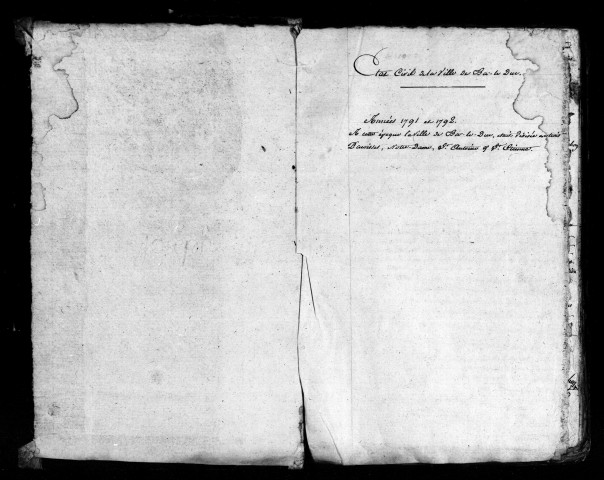 Etat Civil de la Ville de Bar-le-Duc.
Années 1791 et 1792.
A cette époque la Ville de Bar-le-Duc, était divisée en trois
Paroisses, Notre-Dame, St. Antoine & St. Etienne.